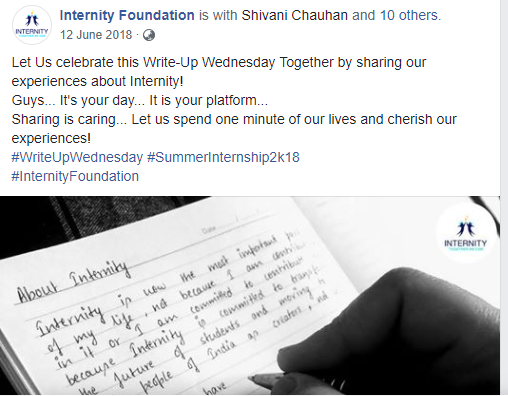 Internity Foundation is with Shivani Chauhan and 10 others.
12 June 2018 ·
INTERNITY
Let Us celebrate this Write-Up Wednesday Together by sharing our
experiences about Internity!
Guys... It's your day... It is your platform...
Sharing is caring... Let us spend one minute of our lives and cherish our
experiences!
#WriteUpWednesday #SummerInternship2k18
#InternityFoundation
Date
INTERNITY
About Internity
Internity is now the most important
of my life, not because I am
in it or I am committed to contribute
because Internity is committed to
the future of students and moving
people of India as creators, not
have